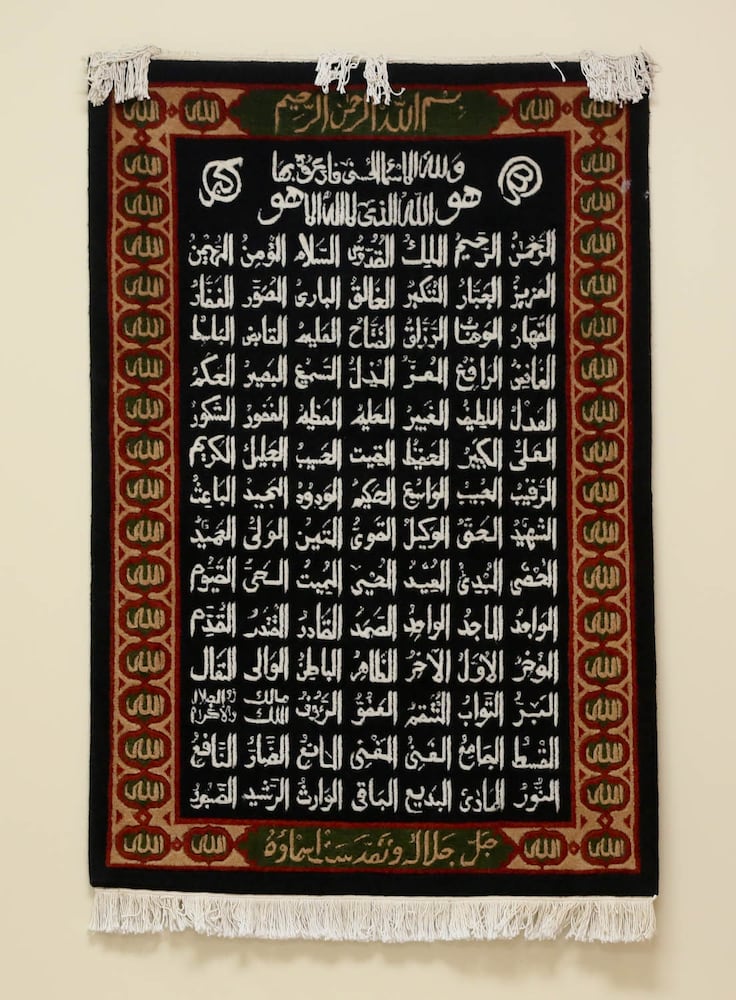 بسم الله الرحمن الرحيم
ولله الاسماء الحسنى فادعوه بها
هو الله الذى لا اله الا هو
الرحمن الرحيم الملك القدوس السلام المؤمن المهيمن
العزيز الجبار المتكبر الخالق البارئ المصور الغفار
القهار الوهاب الرزاق الفتاح العليم القابض الباسط
الخافض الرافع المعز المذل السميع البصير الحكم
العدل اللطيف الخبير الحليم العظيم الغفور الشكور
العلى الكبير الحفيظ المقيت الحسيب الجليل الكريم
الرقيب المجيب الواسع الحكيم الودود المجيد الباعث
الشهيد الحق الوكيل القوى المتين الولى الحميد
المحصى المبدئ المعيد المحيى المميت الحى القيوم
الواجد الماجد الواحد الصمد القادر المقتدر المقدم
المؤخر الاول الآخر الظاهر الباطن الوالى المتعال
البر التواب المنتقم العفو الرؤف مالك الملك ذو الجلال والاكرام
المقسط الجامع الغنى المغنى المانع الضار النافع
النور الهادى البديع الباقى الوارث الرشيد الصبور
جل جلاله وتقدست اسماؤه
الله